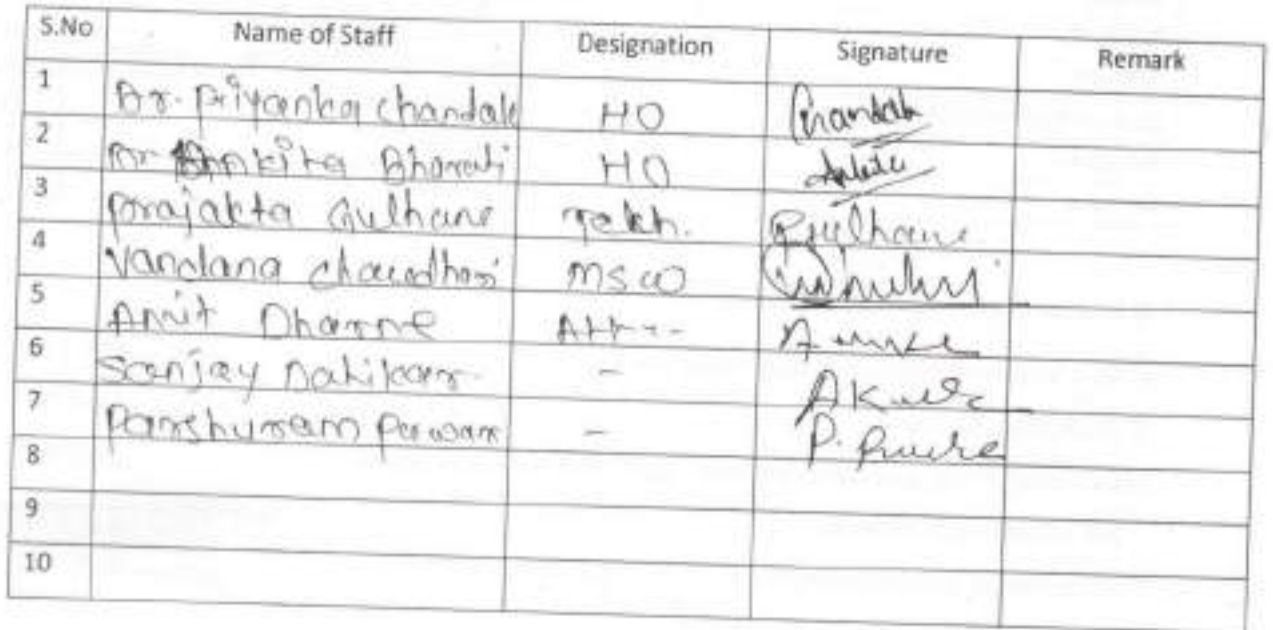 S.No Name of Staff Designation Signature Remark
1 Dr. Priyanka Chandak HO Chandak
2 Dr Ankita Bharati HO Ankita
3 Prajakta Gulhane Tekh. PGulhane
4 Vandana Chaudhari MSW
5 Amit Dharme Att---
6 Sanjay -
7 Parshuram Pawar -
8
9
10